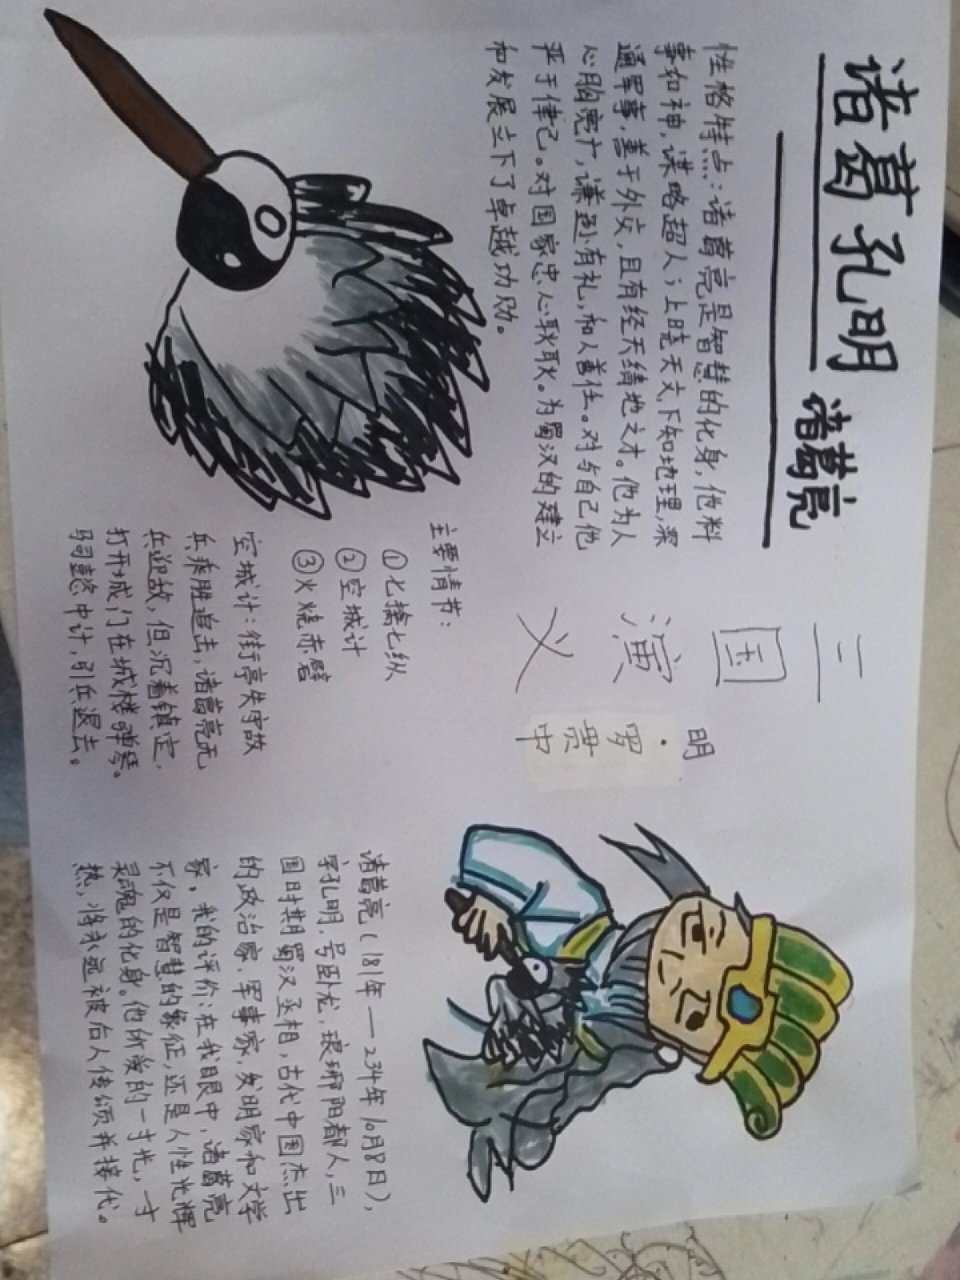 诸葛孔明
诸葛亮
性格特点:诸葛亮是智慧的化身,他料
事如神,谋略超人;上晓天文,下知地理,深
通军事,善于外交,且有经天纬地之才。他为人
心胸宽广,谦逊有礼,知人善任。对与自己他
严于律己。对国家忠心耿耿。为蜀汉的建立
和发展立下了卓越功勋。
三
国
演
义
明
·
罗
贯
中
主要情节:
①七擒七纵
②空城计
③火烧赤壁
空城计:街亭失守敌
兵乘胜追击,诸葛亮无
兵迎敌,但沉着镇定,
打开城门在城楼弹琴。
司马懿中计,引兵退去。
诸葛亮(181年—234年10月8日),
字孔明,号卧龙,琅琊阳都人,三
国时期蜀汉丞相,古代中国杰出
的政治家、军事家、发明家和文学
家。我的评价:在我眼中,诸葛亮
不仅是智慧的象征,还是人性光辉
灵魂的化身。他所爱的一寸光,一寸
热,将永远被后人传颂并接代。